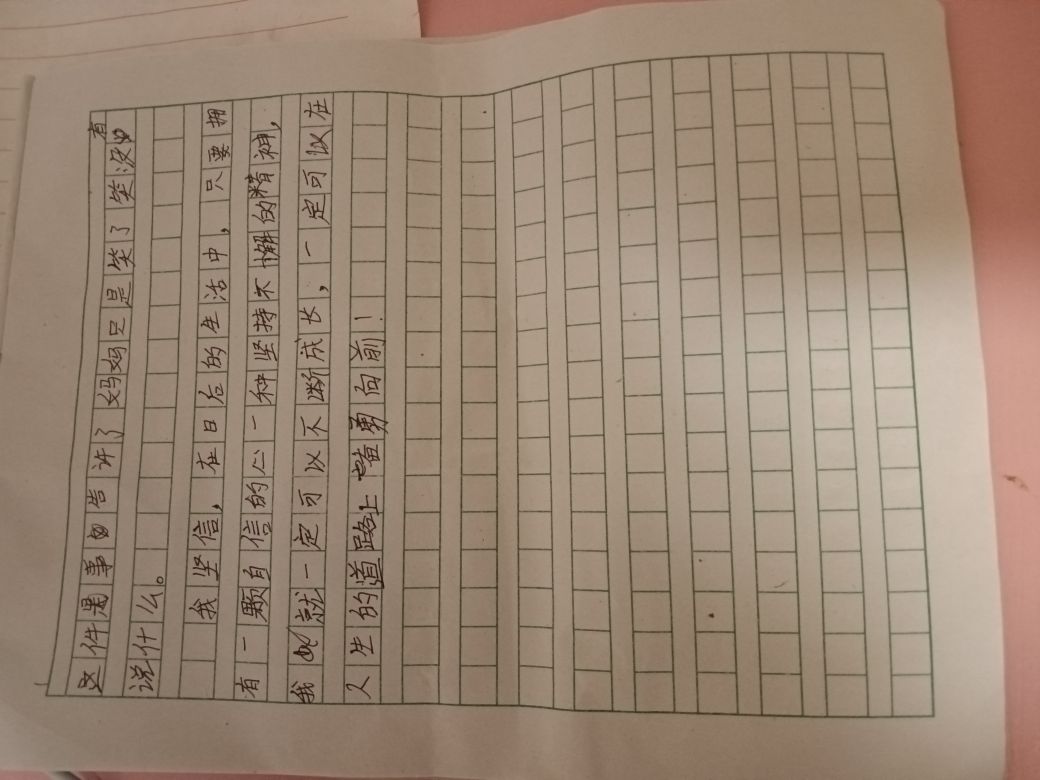 这件事告许了妈妈只是笑了笑没有
说什么。
我坚信，在日后的生活中，只要拥
有一颗自信的心一种坚持不懈的精神，
我就一定可以不断成长，一定可以在
人生的道路上奋勇向前！